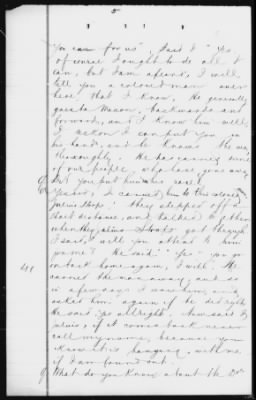 5
you can for us", said I "Yes,
of course I ought to do all I
can, but I am afraid, I will
tell you a colored man over
here that I know. He generally
goes to Mexon, backwards and
forwards, and I know him well,
I reckon I can put you in
his hands, and he knows the way
thoroughly. He has carried some
of our people, who have gone away
Q But you put him in his
Yes sir, I carried him to this colored man
Julius Stops. They stepped off a
short distance, and talked together
when they, Julius Stops got through
I said, will you attend to him
He said, "Yes" you go
on back home again, I will. He
carried the man away, and so
in a few days I saw him, and
asked him again if he did
He said yes all right. Now said I
Julius, if it comes back never
call my name, because you
know it is hanging with me
if I am found out.
Q What do you know about the